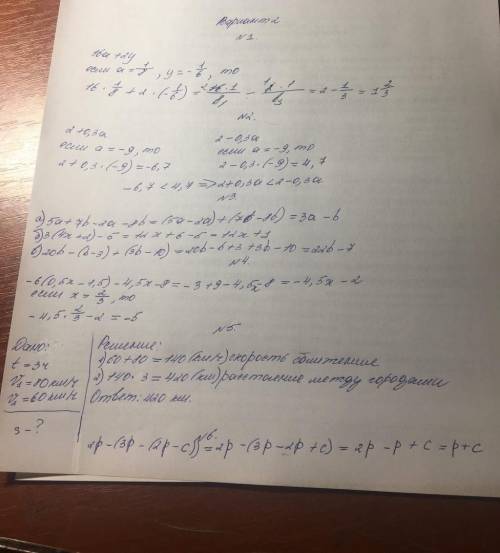 Вариант 2
№1.
16a+2y
если a=1/8, y=-1/6, то
16·1/8+2·(-1/6)=16·1/8-2·1/6=2-1/3=1 2/3
№2.
2+0,3a 2-0,3a
если a=-9, то если a=-9, то
2+0,3·(-9)=-6,7 2-0,3·(-9)=4,7
-6,7<4,7=>2+0,3a<2-0,3a
№3
а)5a+7b-2a-8b=(5a-2a)+(7b-8b)=3a-b
б)3(4x+2)-5=12x+6-5=12x+1
в)20b-(b-3)+(3b-10)=20b-b+3+3b-10=22b-7
№4.
-6(0,5x-1,5)-4,5x-8=-3+9-4,5x-8=-4,5x-2
если x=2/3, то
-4,5·2/3-2=-5
№5.
Дано: Решение:
t=3ч 1)60+80=140(км/ч)скорость сближения
V1=80км/ч 2)140·3=420(км)расстояние между городами
V2=60км/ч Ответ: 420 км.
s-?
№6.
2p-(3p-(2p-c))=2p-(3p-2p+c)=2p-p+c=p+c